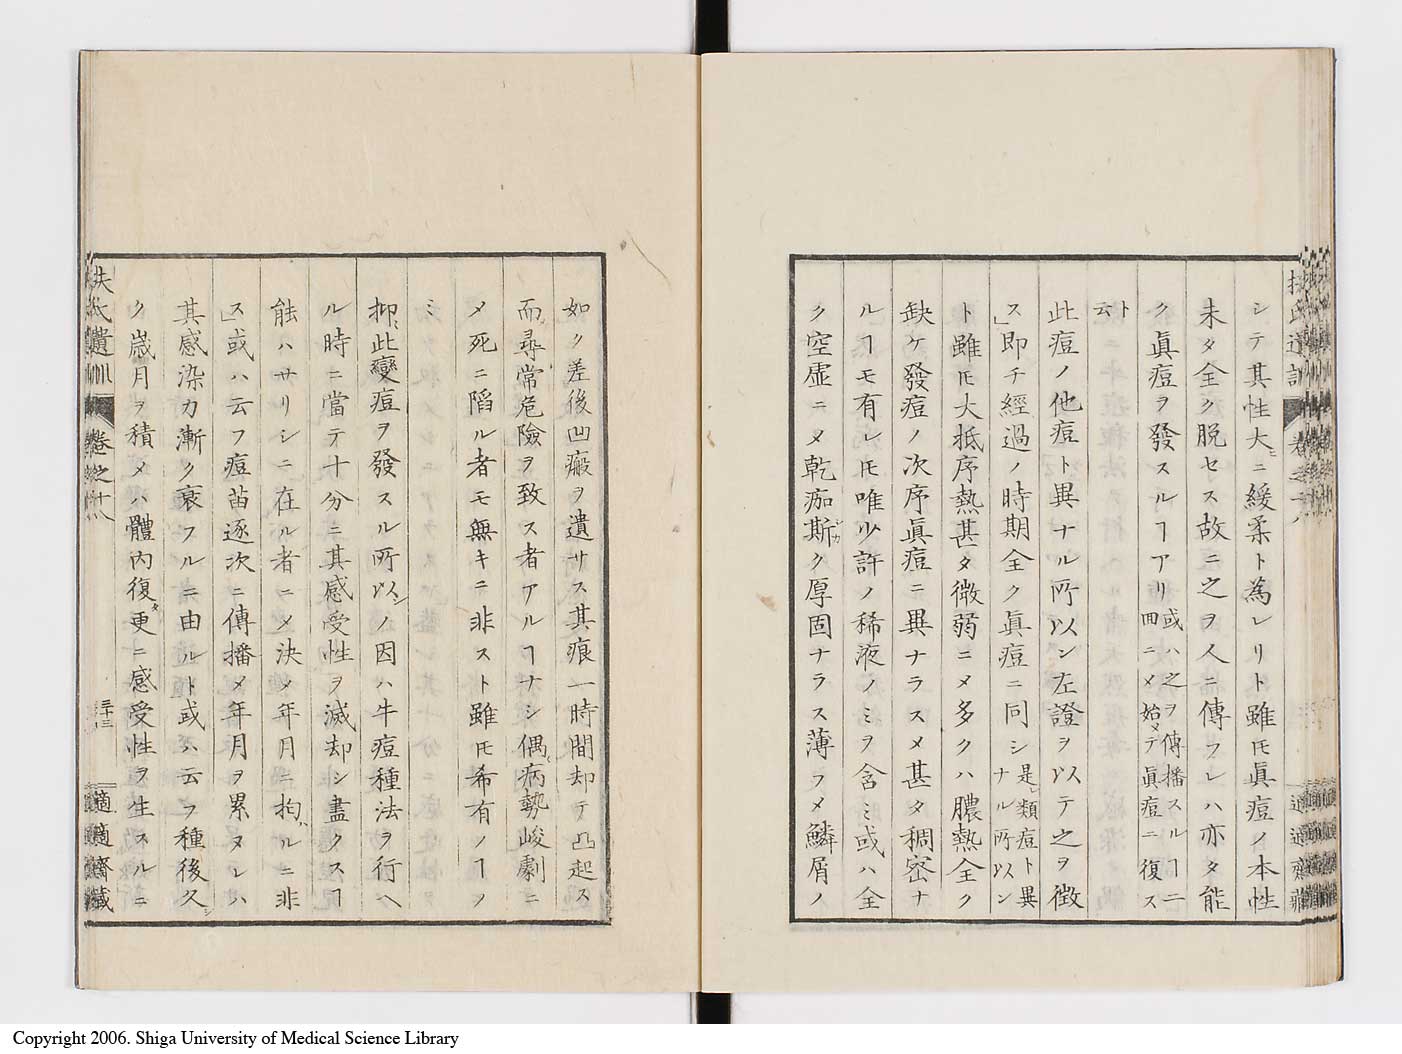 シテ其性大ニ緩柔ト為レリト雖𪜈眞痘ノ本性
未タ全ク脱セス故ニ之ヲ人ニ傳フレハ亦タ能
ク眞痘ヲ發スルヿアリ或ハ之ヲ傳播スルヿ二
回ニメ始メテ眞痘ニ復ス
ト
云
此痘ノ他痘ト異ナル所以ン左證ヲ以テ之ヲ徴
ス」即チ經過ノ時期全ク眞痘ニ同シ是」類痘ト異
ナル所以ン
ト雖𪜈大抵序熱甚タ微弱ニメ多クハ膿熱全ク
缺ケ發痘ノ次序眞痘ニ異ナラスメ甚タ稠密ナ
ルヿモ有レ𪜈唯少許ノ稀液ノミヲ含ミ或ハ全
ク空虚ニメ乾痂斯ク厚固ナラス薄フメ鱗屑ノ
如ク差後凹瘢ヲ遺サス其痕一時間却テ凸起ス
而尋常危險ヲ致ス者アルヿナシ偶病勢峻劇ニ
メ死ニ陷ル者モ無キニ非スト雖𪜈希有ノヿノ
ミ
抑此變痘ヲ發スル所以ノ因ハ牛痘種法ヲ行ヘ
ル時ニ當テ十分ニ其感受性ヲ滅却シ盡クスヿ
能ハサリシニ在ル者ニメ決メ年月ニ拘ルニ非
ス」或ハ云フ痘苗逐次ニ傳播メ年月ヲ累タレハ
其感染力漸ク衰フルニ由ルト或ハ云フ種後久
ク歳月ヲ積メハ體内復更ニ感受性ヲ生スルニ
扶氏遺訓 卷之十八 三十三 適適齋藏
Copyright 2006. Shiga University of Medical Science Library